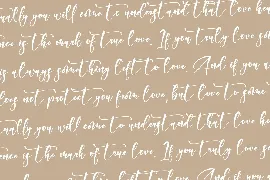 ually you will come to understand that love hea
nce is the mark of true love. If you truly love som
is always something left to love. And if you a
loes not protect you from love, but love to some
ually you will come to understand that love hea
nce is the mark of true love. If you truly love som
is always something left to love. And if you